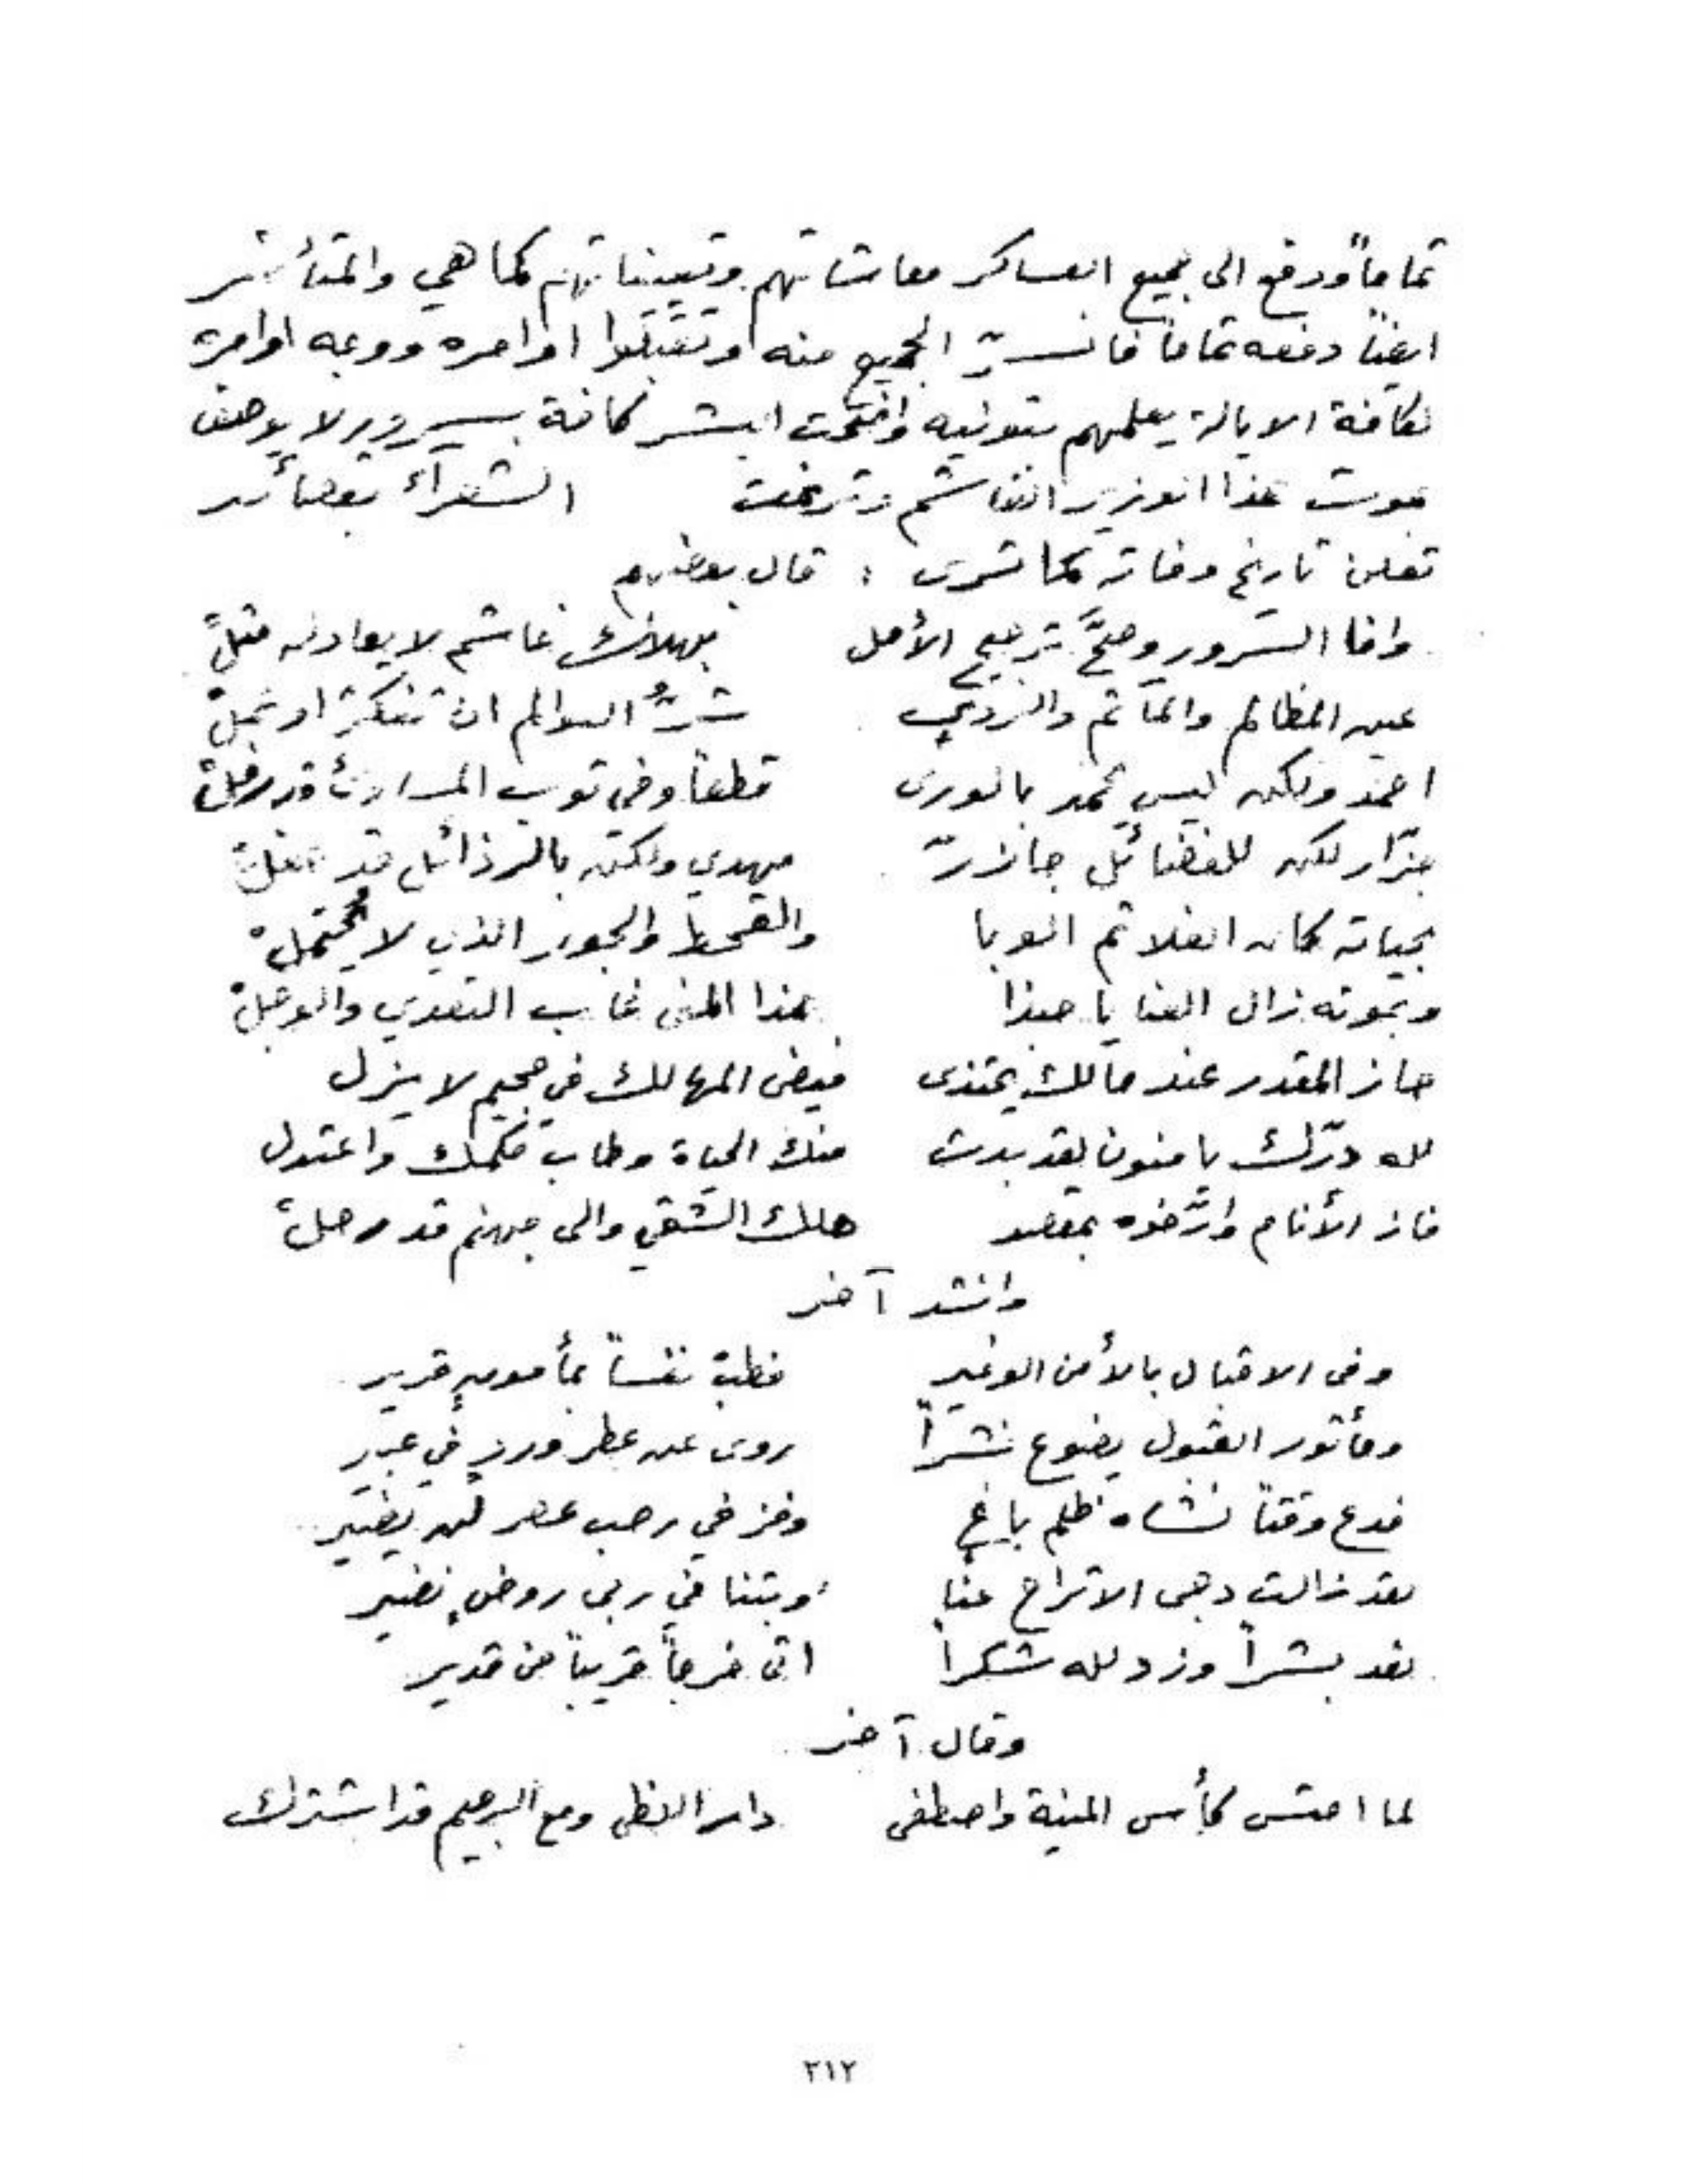 تماماً ودفع الى جميع العساكر معاشاتهم وتعييناتهم كما هي والمتأخر
ايضاً دفعه تماماً فانسرّ الجميع منه وتقبلوا اوامره ووجه اوامره
لكافة الايالة يعلمهم بتوليه وافتتحت البشر كافة بسرور لا يوصف
بموت هذا الوزير الغاشم وترنمت الشعراء بقصائد
تعلن تاريخ وفاته كما ترى : قال بعضهم
وافا السرور وصحَّ ترجيح الأمل بهلاك غاشم لا يعادله مثلْ
عين المظالم والمآثم والردي شرُّ العوالم ان تفكر او عملْ
احمد ولكن ليس يحمد بالورى قطعاً وفي ثوب المساوئ قد رفلْ
جزّار لكن للفضائل جازرّ مهدي ولكن بالرذائل قد
بحياته كان الغلا ثم الوبا والقحط والجور الذي لا يُحتملْ
وبموته زال العنا يا حبذا هذا المنى غاب التعدي والوجلْ
حاز المقدر عند مالك يحتذى فيض المهالك في جحيم لا يزل
لله درّك يا منون لقد بدت منك الحياة وطاب حكمك واعتدل
فاز الأنام وارّخوه بمقصد هلك الشقي والى جهنم قد رحلْ
وانشد آخر
وفى الاقبال بالأمن الوفير فطبْ نفساً بمأمونٍ قرير
ومأثور القبول يضوع نشراً روى عن عطر وردٍ في عبير
فدع وقتاً نشاه ظلم باغٍ وفز في رحب عصر لن يضير
لقد زالت دجى الاتراح عنا وبتنا في ربى روضٍ نضير
فعد بشراً وزد لله شكراً اتى فرجاً قريباً من قدير
وقال آخر
لما احتسى كأس المنية واصطفى دار اللظى ومع الرجيم قد اشترك
٢١٢